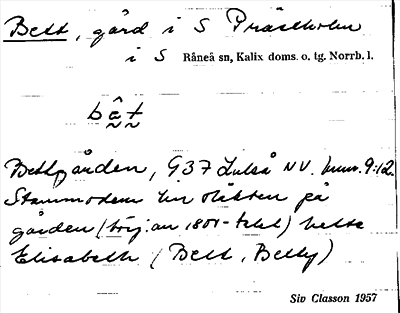 Bett, gård i S Prästholm
i S Råneå sn, Kalix doms. o. tg. Norrb. l.
bât
Bettgården, G37 Luleå NV. hmn. 9:12.
Stammodern till släkten på
gården (börj. av 1800-talet) hette
Elisabeth (Bett, Betty)
Siv Classon 1957